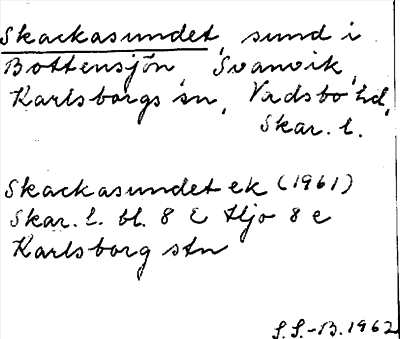 Skackasundet, sund i
Bottensjön, Svanvik,
Karlsborgs sn, Vadsbo hd,
Skar. l.
Skackasundet ek (1961)
Skar. l. bl. 8 E Hjo 8 e
Karlsborg stn
S.S.-B. 1962